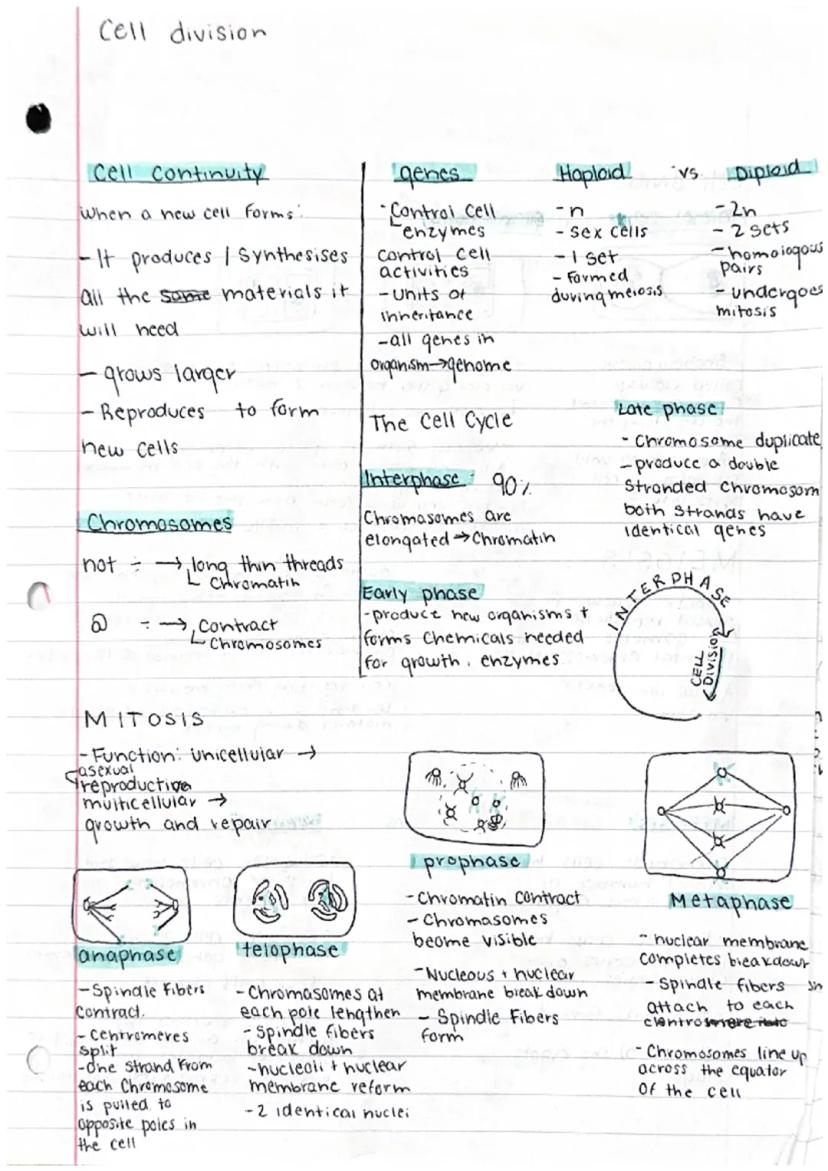 Cell division
Cell Continuity
When a new cell forms:
- It produces / Synthesises
all the some materials it
will need
- grows larger
- Reproduces to form
new cells
Chromosomes
not ÷ → long thin threads
Chromatin
÷ → Contract
Chromosomes
genes
- Control Cell
enzymes
control cell
activities
- Units of
inheritance
- all genes in
organism → genome
Haploid vs. Diploid
- n
- sex cells
- 1 set
- formed
during meiosis
- 2n
- 2 sets
- homologous
pairs
- undergoes
mitosis
The Cell Cycle
Interphase: 90%
Chromasomes are
elongated → Chromatin
Early phase
- produce new organisms +
forms Chemicals needed
for growth. enzymes
Late phase
- Chromosome duplicate
- produce a double
Stranded Chromosom
both strands have
identical genes
INTERPHASE
CELL
Division
MITOSIS
- Function: Unicellular →
asexual
reproductive
multicellular →
growth and repair
anaphase
- Spindle Fibers
Contract.
- Centromeres
split
- One strand from
each Chromosome
is pulled to
opposite poles in
the cell
telophase
- Chromasomes at
each pole lengthen
- Spindle fibers
break down
- nucleoli + nuclear
membrane reform
- 2 identical nuclei
prophase
- Chromatin Contract
- Chromasomes
beome visible
- Nucleous + nuclear
membrane break down
- Spindle Fibers
form
Metaphase
- nuclear membrane
completes breakdown
- Spindle fibers
attach to each
- Chromosomes line up
across the equator
of the cell